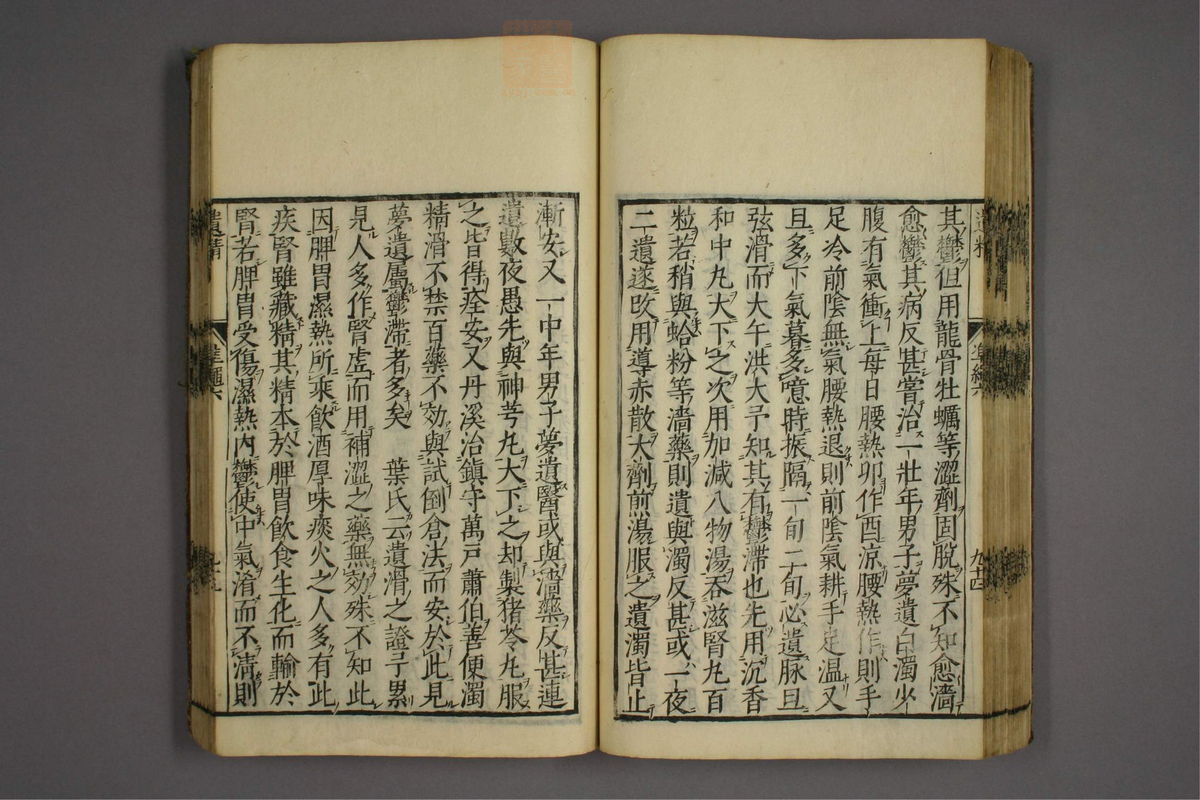 其鬱但用龍骨牡蠣等澀劑固脫殊不知愈濇
愈鬱其病反甚嘗治一壯年男子夢遺白濁少
腹有氣衝上每日腰熱卯作酉涼腰熱作則手
足冷前陰無氣腰熱退則前陰氣耕手足温又
旦多下氣暮多噫時振隔一旬二旬必遺脉旦
弦滑而大午洪大予知其有鬱滯也先用沉香
和中丸大下之次用加減八物湯吞滋腎丸百
粒若稍與蛤粉等濇藥則遺與濁反甚或一夜
二遺遂改用導赤散大劑煎湯服之遺濁皆止
漸安又一中年男子夢遺醫或與濇藥反甚連
遺數夜愚先與神芎丸大下之却製猪苓丸服
之皆得痊安又丹溪治鎮守萬戸蕭伯善便濁
精滑不禁百藥不効與試倒倉法而安於此見
夢遺屬鬱滯者多矣 葉氏云遺滑之證予累
見人多作腎虛而用補澀之藥無効殊不知此
因脾胃濕熱所乘飲酒厚味痰火之人多有此
疾腎雖藏精其精本於脾胃飲食生化而輸於
腎若脾胃受傷濕熱內鬱使中氣淆而不清則
遺精